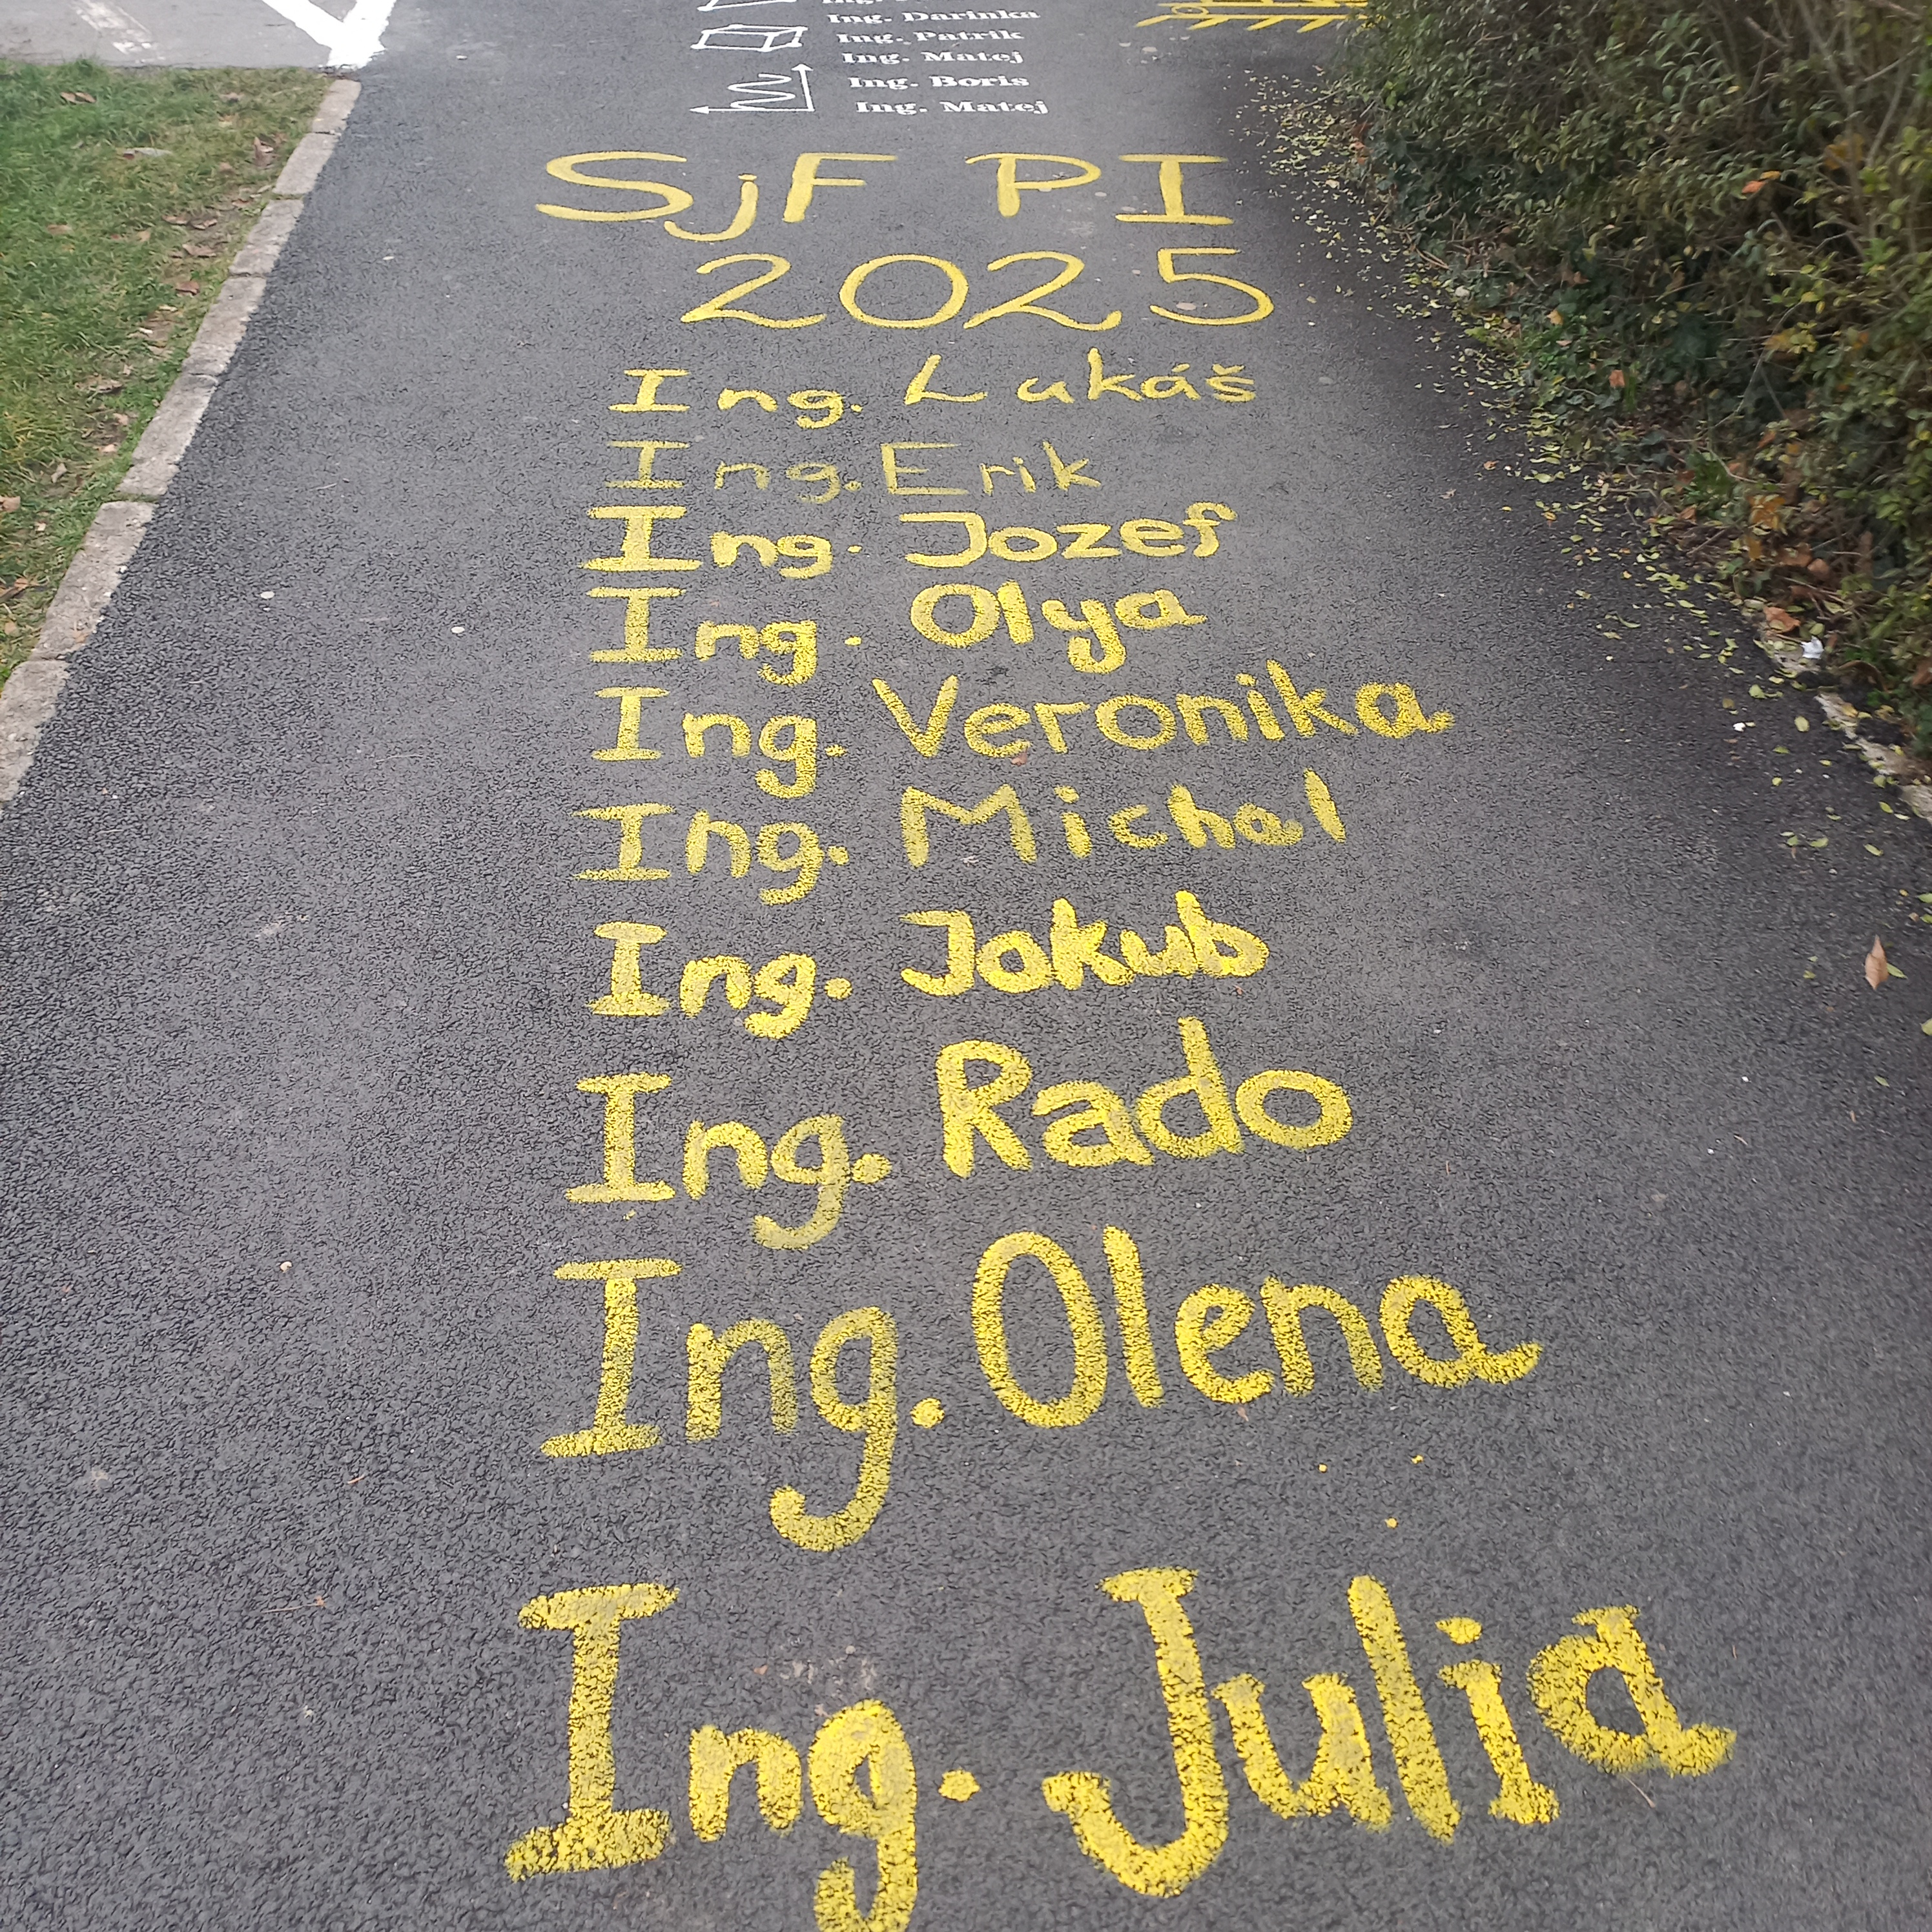 Ing. Darinka
Ing. Patrik
Ing. Matej
Ing. Boris
Ing. Matej
SjF PI
2025
Ing. Lukáš
Ing. Erik
Ing. Jozef
Ing. Olya
Ing. Veronika
Ing. Michal
Ing. Jakub
Ing. Rado
Ing. Olena
Ing. Julia